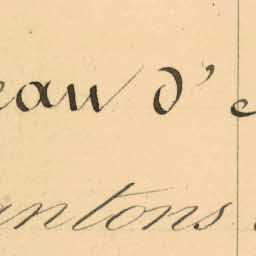 eau d'
antons